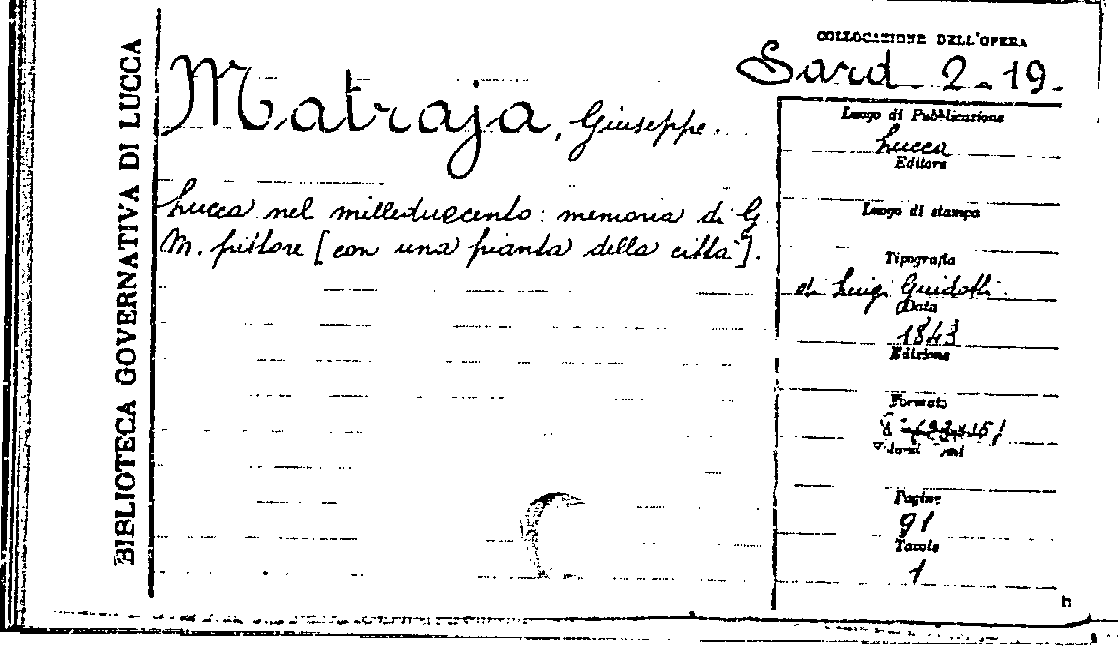 BIBLIOTECA GOVERNATIVA DI LUCCA
Matraja, Giuseppe.
Lucca nel milleduecento: memoria di G
M. pittore [con una pianta della città].
COLLOCAZIONE DELL'OPERA
Sard. 2-19.
Luogo di Pubblicazione
Lucca
Editore
Luogo di stampa
Tipografia
di Luigi Guidotti
Data
1843
Edizione
Formato
8
Pagine
91
Tavole
1
h